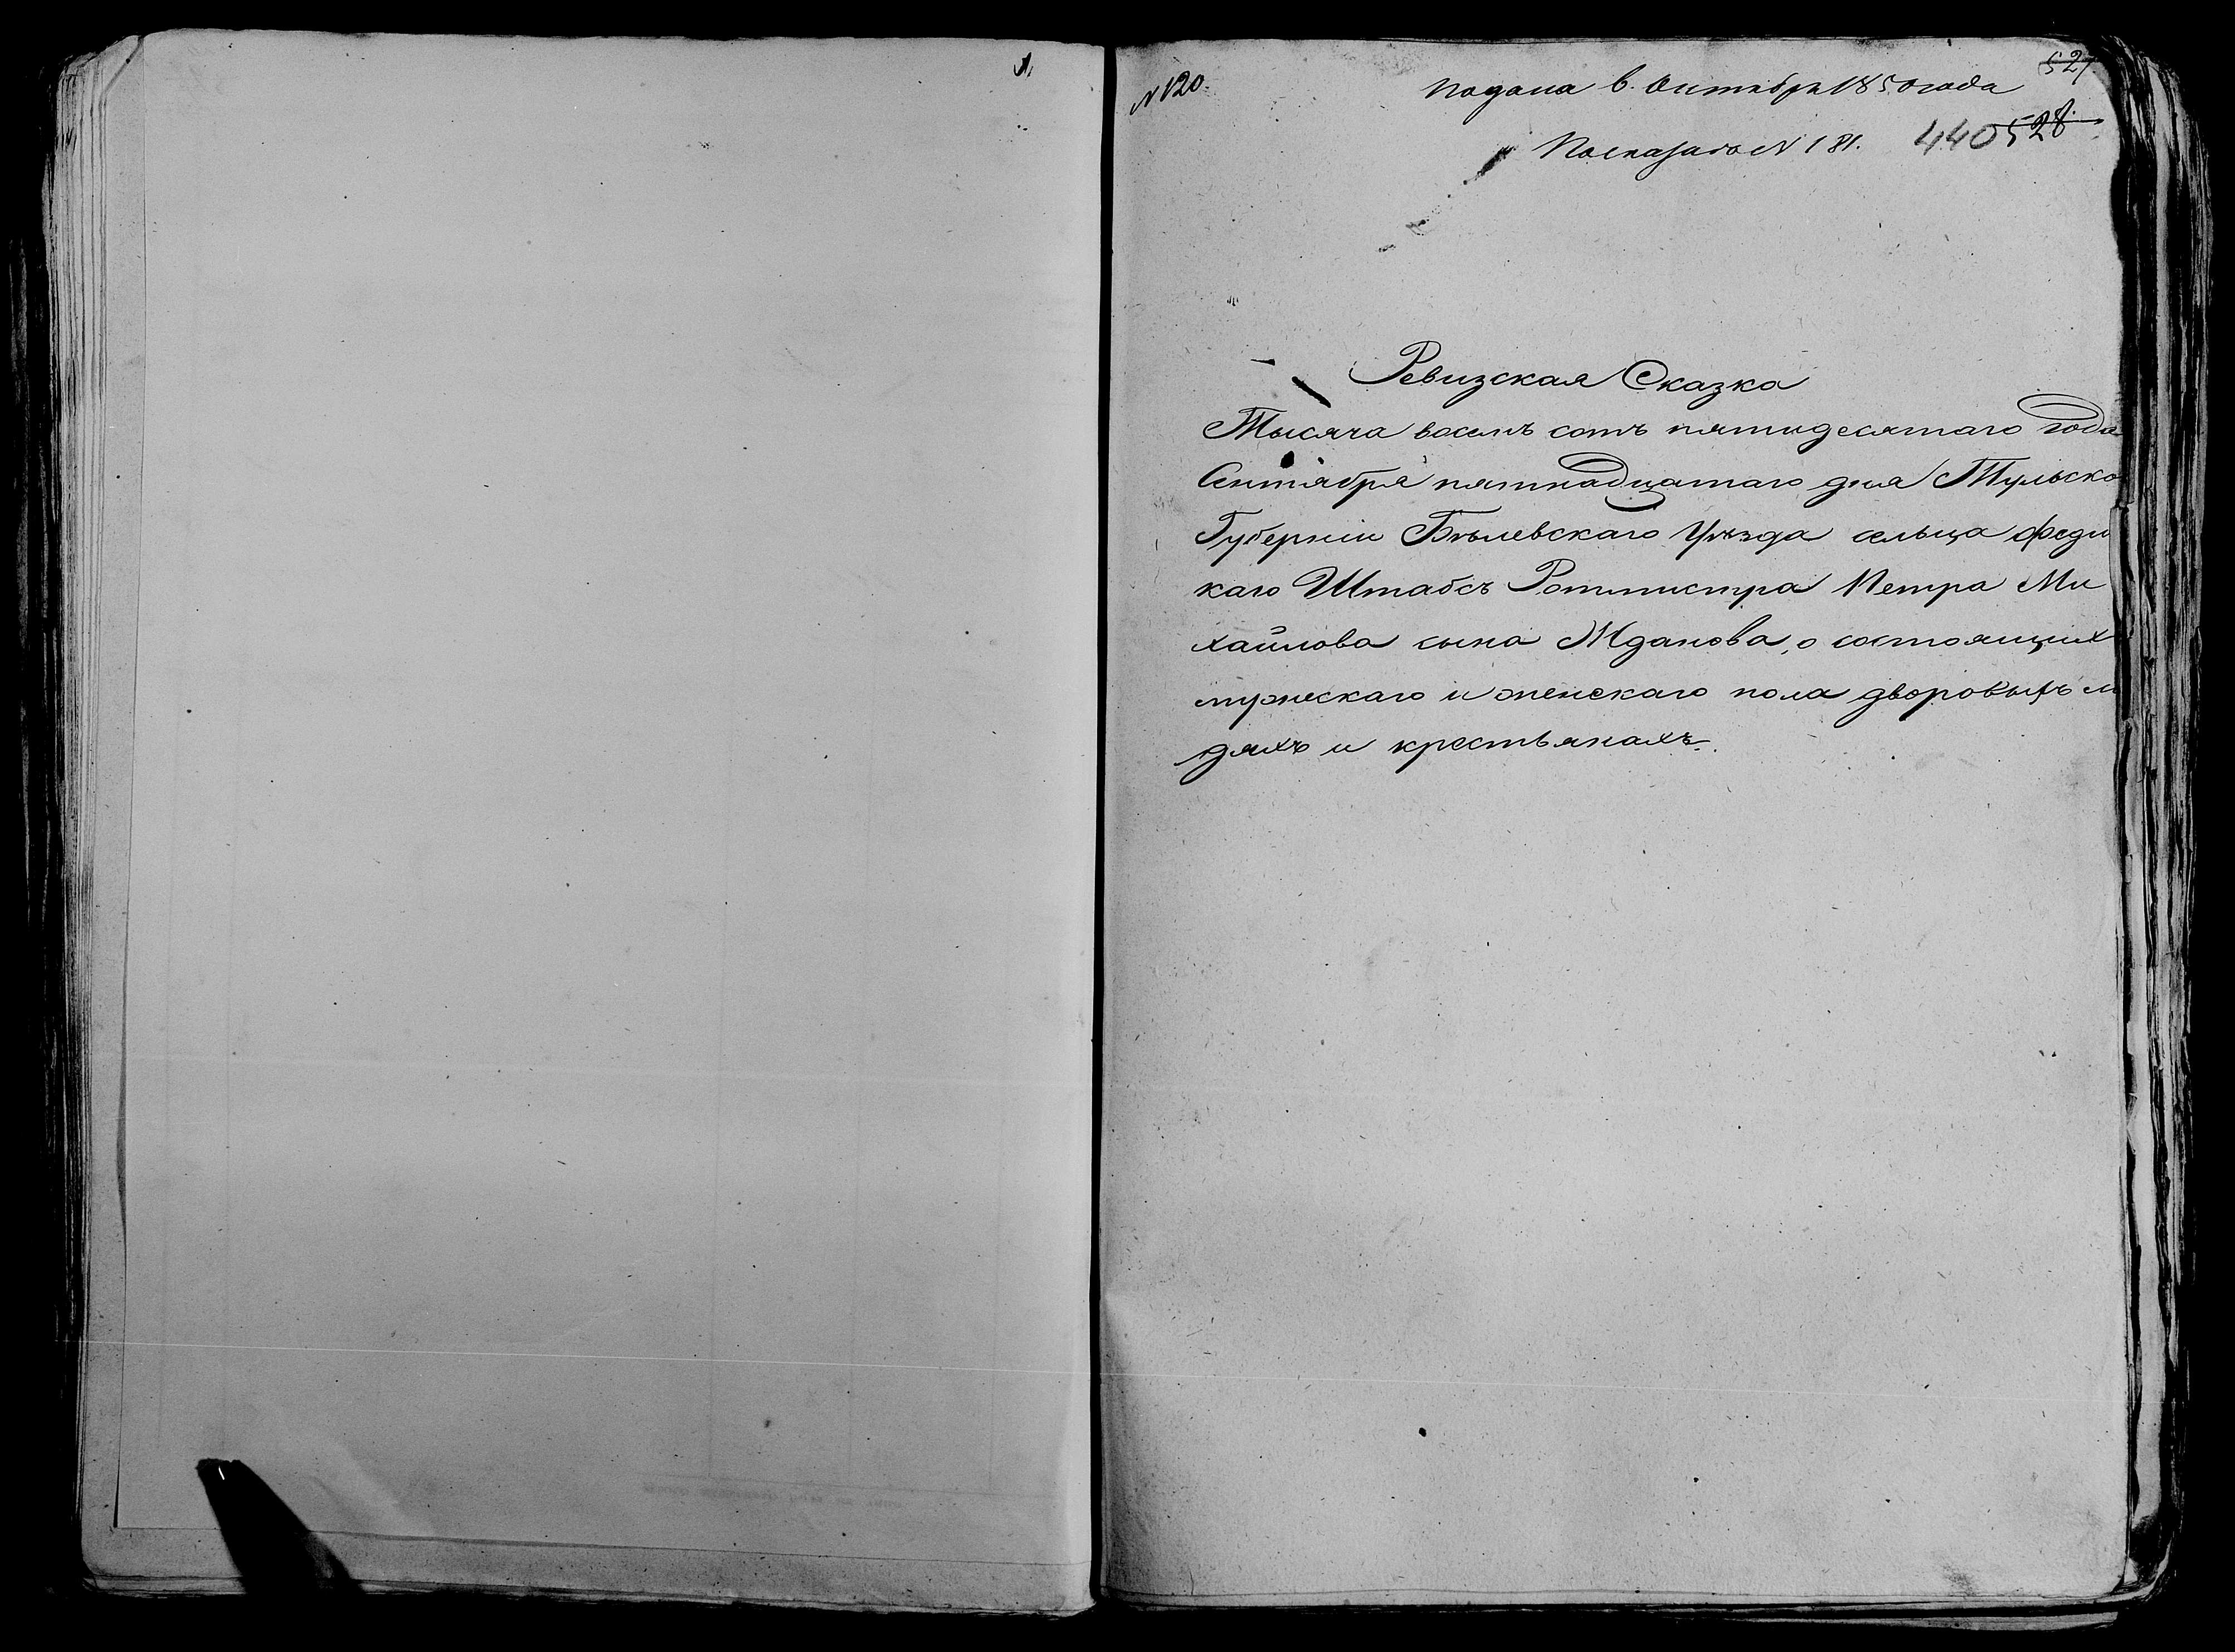 N 120.
527
Подана в. Октебре 1850 года
440 528.
По сказкѣ N 181.
Ревизская Сказка
Тысяча восемь сотъ пятидесятаго года
Сентября пятнадцатаго дня Тульско
Губерніи Бѣлевскаго Уѣзда сельца Феди
каго Штабсъ Ротмистра Петра Ми
хайлова сына Жданова, о состоящих
мужескаго и женскаго пола дворовыхъ лю
дяхъ и крестьянахъ.